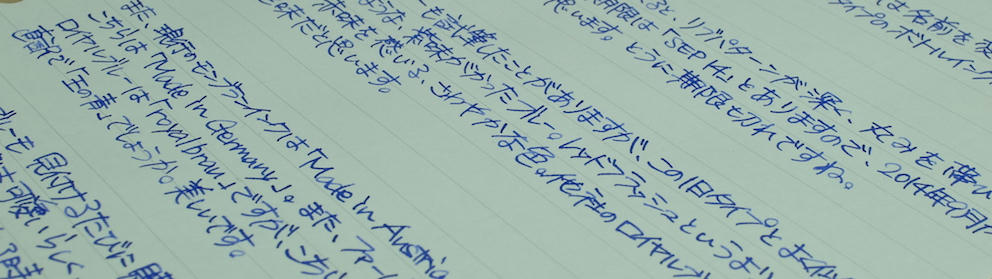 は名前を変
タイプのボトルインク
ると、リブパターンが深く、丸みを帯び
期限は「SEP 14」とありますので、2014年9月
思います。とうに期限も切れですね。
も記載したことがありますが、この旧タイプと
ような、紫味がかったブルー。レッドフラッシュというより
赤味を感じる、さわやかな色。他社のロイヤルブ
味だと思います。
また、現行のモンブランインクは「Made in Austria
こちらは「Made in Germany」。また、ファー
ロイヤルブルーは「royalbrau」ですが、こちら
直訳で「王の青」でしょうか。美しいです。
ルーも見付けるたびに
は可愛いらしく